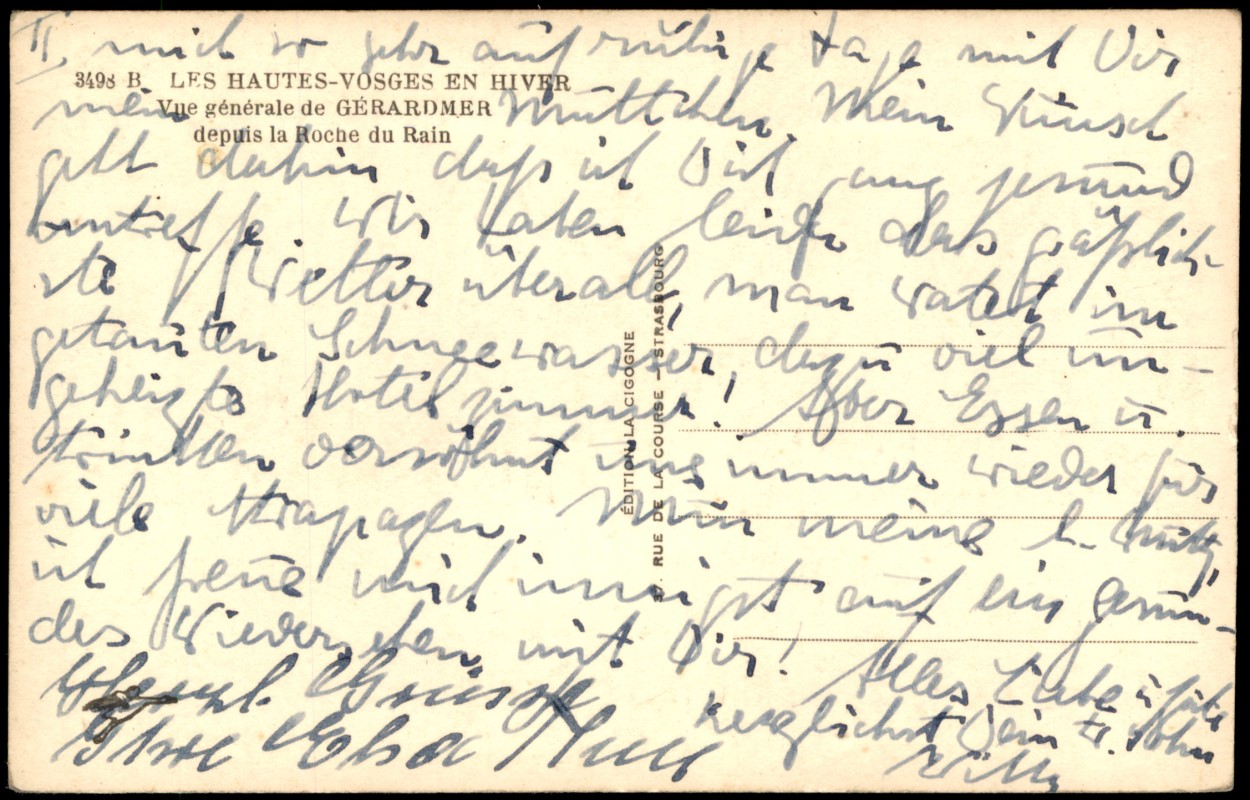 II. mich so sehr auf ruhige Tage mit Dir
3498 B LES HAUTES-VOSGES EN HIVER
Vue générale de GÉRARDMER
depuis la Roche du Rain
mein Muttchen. Mein Wunsch
geht dahin daß ich Dich ganz gesund
antreffe. Wir haben leider das gräßlich-
ste Wetter überall, man watet im
getauten Schneewasser, dazu viel un-
geheizte Hotelzimmer! Aber Essen u.
trinken versöhnt uns immer wieder für
viele Strapazen. Nun meine l. Mutti,
ich freue mich innigst auf ein gesun-
des Wiedersehen mit Dir!
Alles Liebe u. Gute
herzlichst Dein tr. Sohn
Willy
Herzl. Grüsse
Ihre Elsa
ÉDITION LA CIGOGNE
RUE DE LA COURSE - STRASBOURG